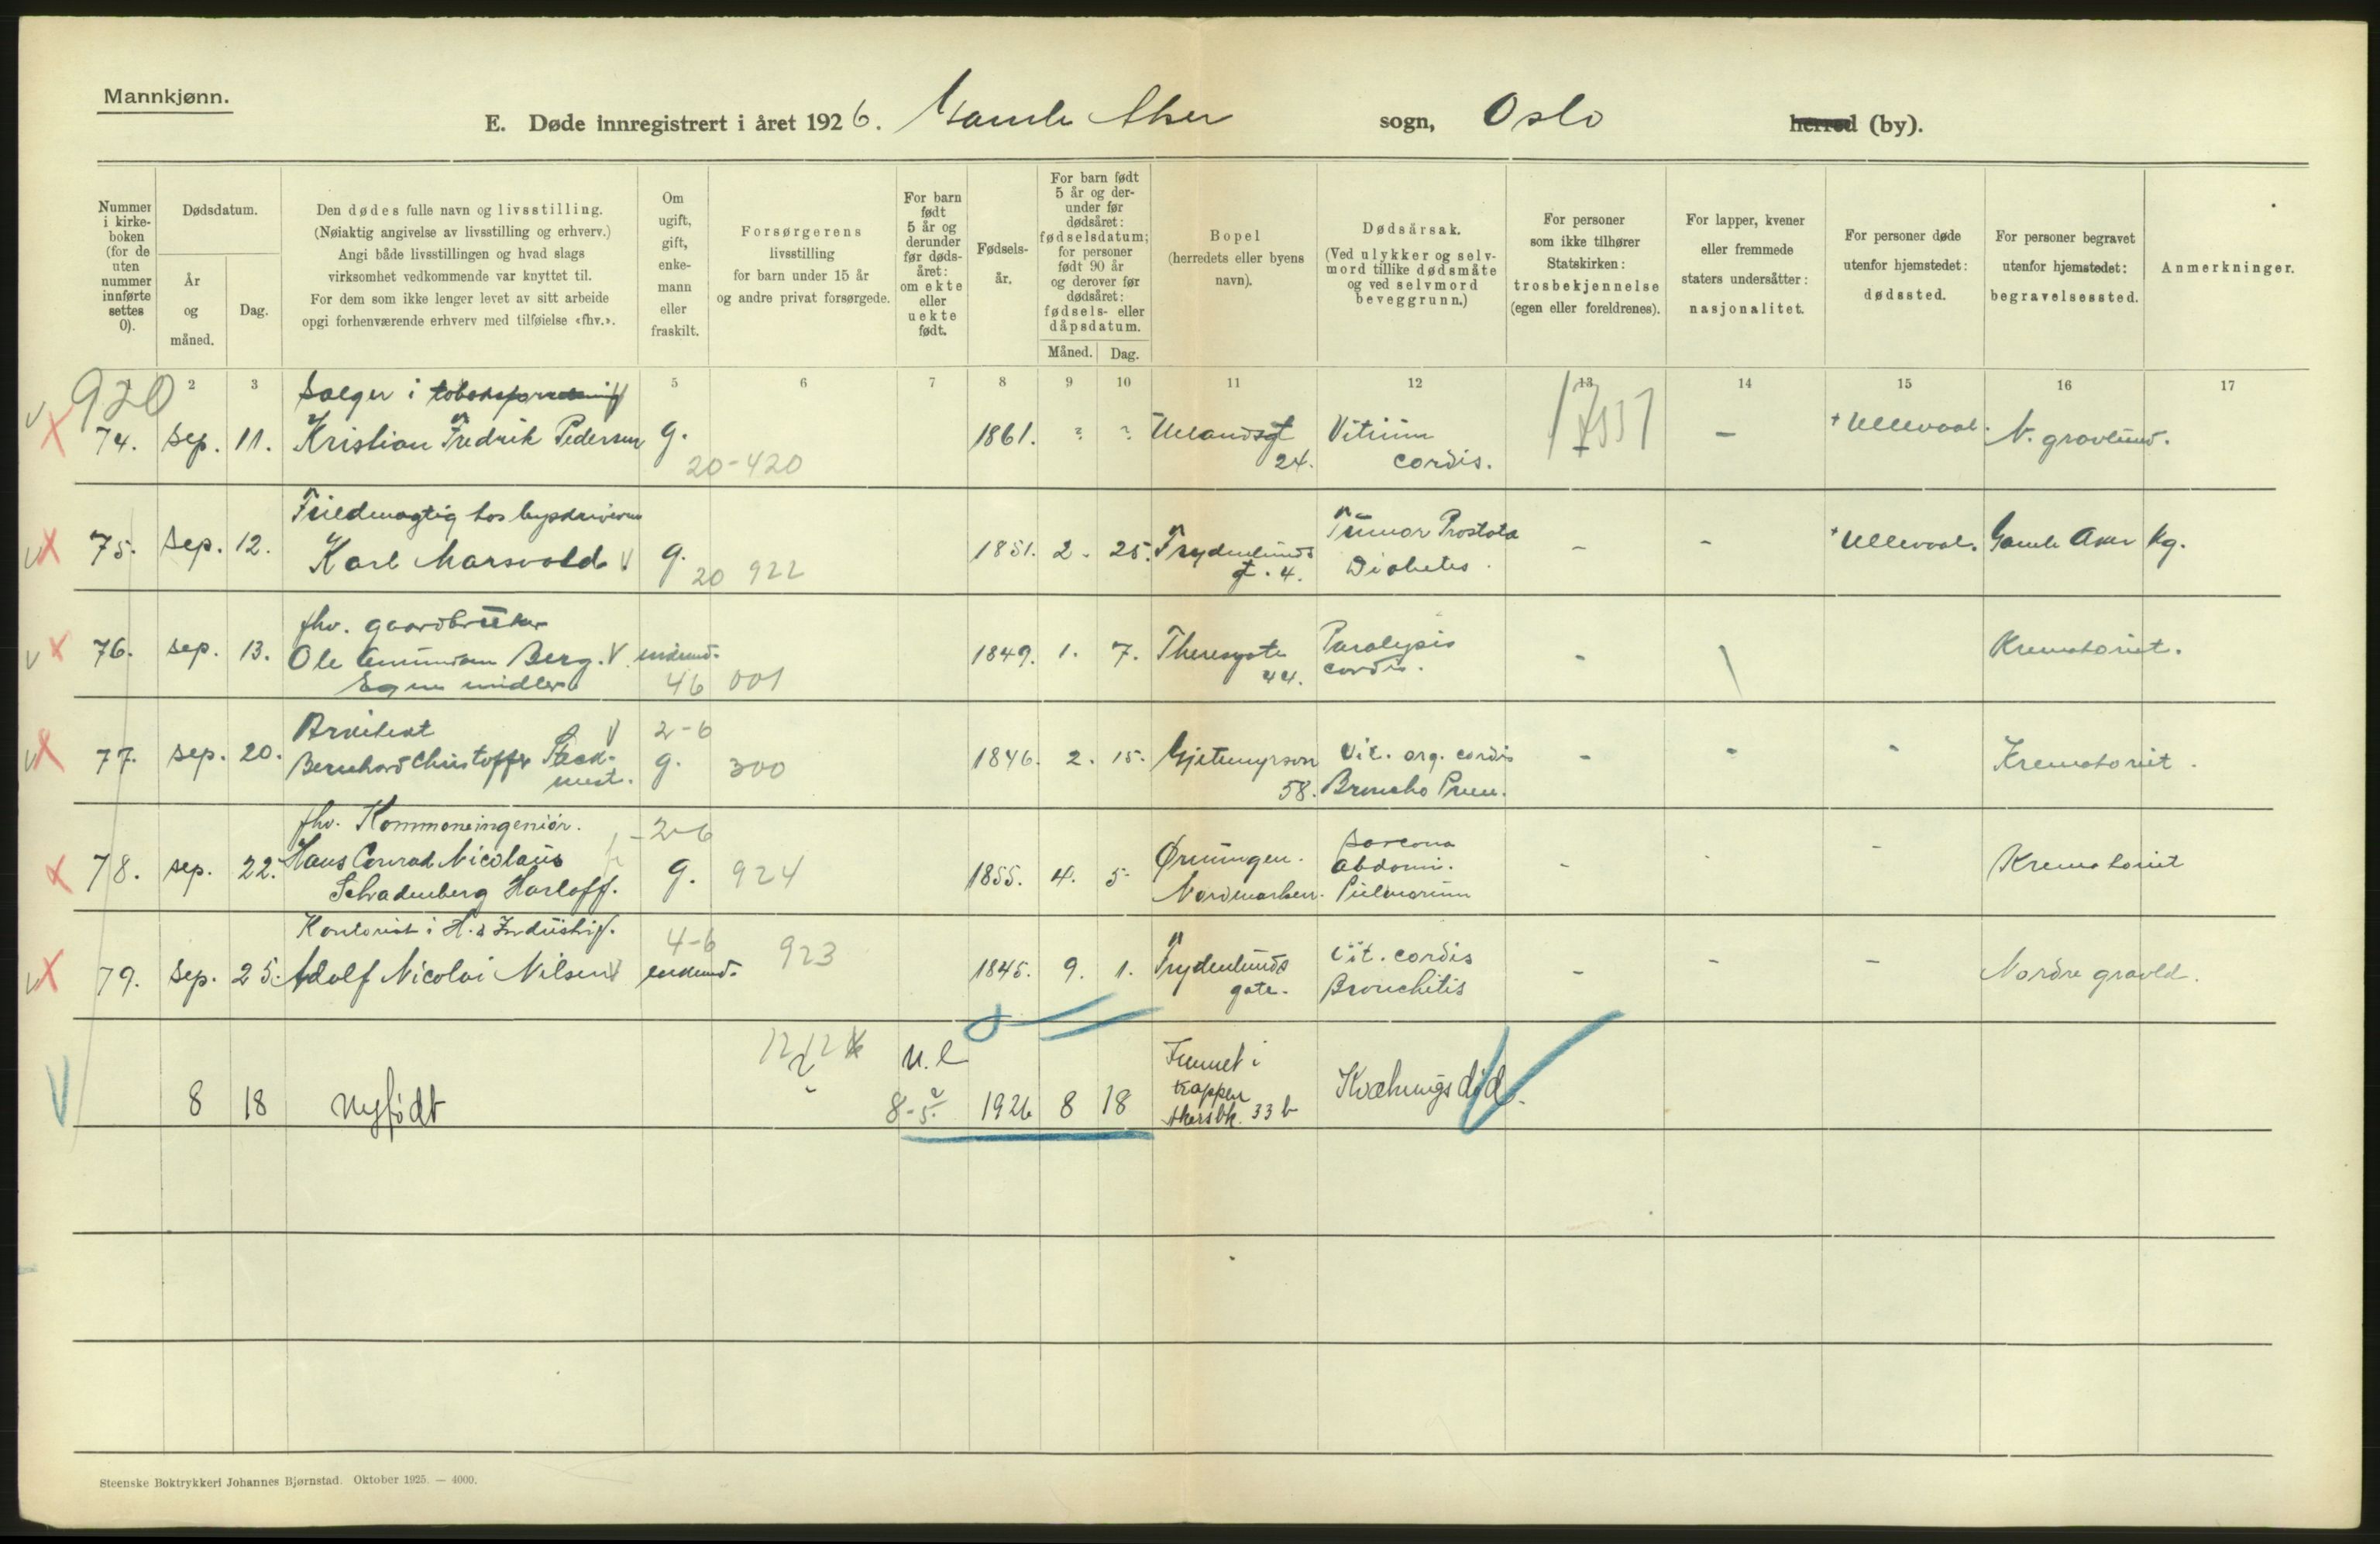 Mannkjønn.
E. Døde innregistrert i året 1926. Gamle Aker sogn, Oslo herred (by).
Nummer i kirkeboken (for de uten nummer innførte settes 0).
Dødsdatum.
År og måned.
Dag.
Den dødes fulle navn og livsstilling.
(Nøiaktig angivelse av livsstilling og erhverv.)
Angi både livsstillingen og hvad slags
virksomhet vedkommende var knyttet til.
For dem som ikke lenger levet av sitt arbeide
opgi forhenværende erhverv med tilføielse «fhv.».
Om ugift, gift, enkemann eller fraskilt.
Forsørgerens
livsstilling
for barn under 15 år
og andre privat forsørgede.
For barn født 5 år og derunder før dødsåret: om ekte eller uekte født.
Fødselsår.
For barn født 5 år og derunder før dødsåret: fødselsdatum; for personer født 90 år og derover før dødsåret: fødsels- eller dåpsdatum.
Måned. Dag.
Bopel
(herredets eller byens
navn).
Dødsårsak.
(Ved ulykker og selvmord tillike dødsmåte og ved selvmord beveggrunn.)
For personer
som ikke tilhører
Statskirken:
trosbekjennelse
(egen eller foreldrenes).
For lapper, kvener
eller fremmede
staters undersåtter:
nasjonalitet.
For personer døde
utenfor hjemstedet:
dødssted.
For personer begravet
utenfor hjemstedet:
begravelsessted.
Anmerkninger.
920 2 3 5 6 7 8 9 10 11 12 13 14 15 16 17
Sælger i
74. Sep. 11. Kristian Fredrik Pedersen g. 1861. ? ? Uelandsgt Vitium - + Ullevaal. N. gravlund.
20-420 24. cordis.
75. Sep. 12. Karl Marsvold g. 1851. 2. 25. Frydenlunds Tumor Prostata - - + Ullevaal. Gamle Aker Kg.
20 922 gt. 4. Diabetes.
fhv. gaardbruker
76. Sep. 13. Ole Amundsen Berg. enkem. 1849. 1. 7. Theresgate Paralysis - Krematoriet.
Egne midler 46 001 44. cordis.
Arkitekt 2-6
77. Sep. 20. Bernhard Christoffer Steckmest. g. 300 1846. 2. 15. Gjetemyrsvn Vit. org. cordis - - - Krematoriet.
58. Broncho Pneu.
fhv. 2-6
78. Sep. 22. Hans Conrad Nicolaus g. 924 1855. 4. 5. Sarcoma Abdomi. - - - Krematoriet
Schadenberg Harloff. Nordmarken. Pulmonum
Kontorist i
4-6 923
79. Sep. 25. Adolf Nicolai Nilsen enkemd. 1845. 9. 1. Frydenlunds Vit. cordis - - - Nordre gravld.
gate. Bronchitis
u.e Funnet i
8 18 Nyfødt 8-5 1926 8 18 trappen Kvælningsdød.
Akersbk. 33 b
Steenske Boktrykkeri Johannes Bjørnstad. Oktober 1925. — 4000.